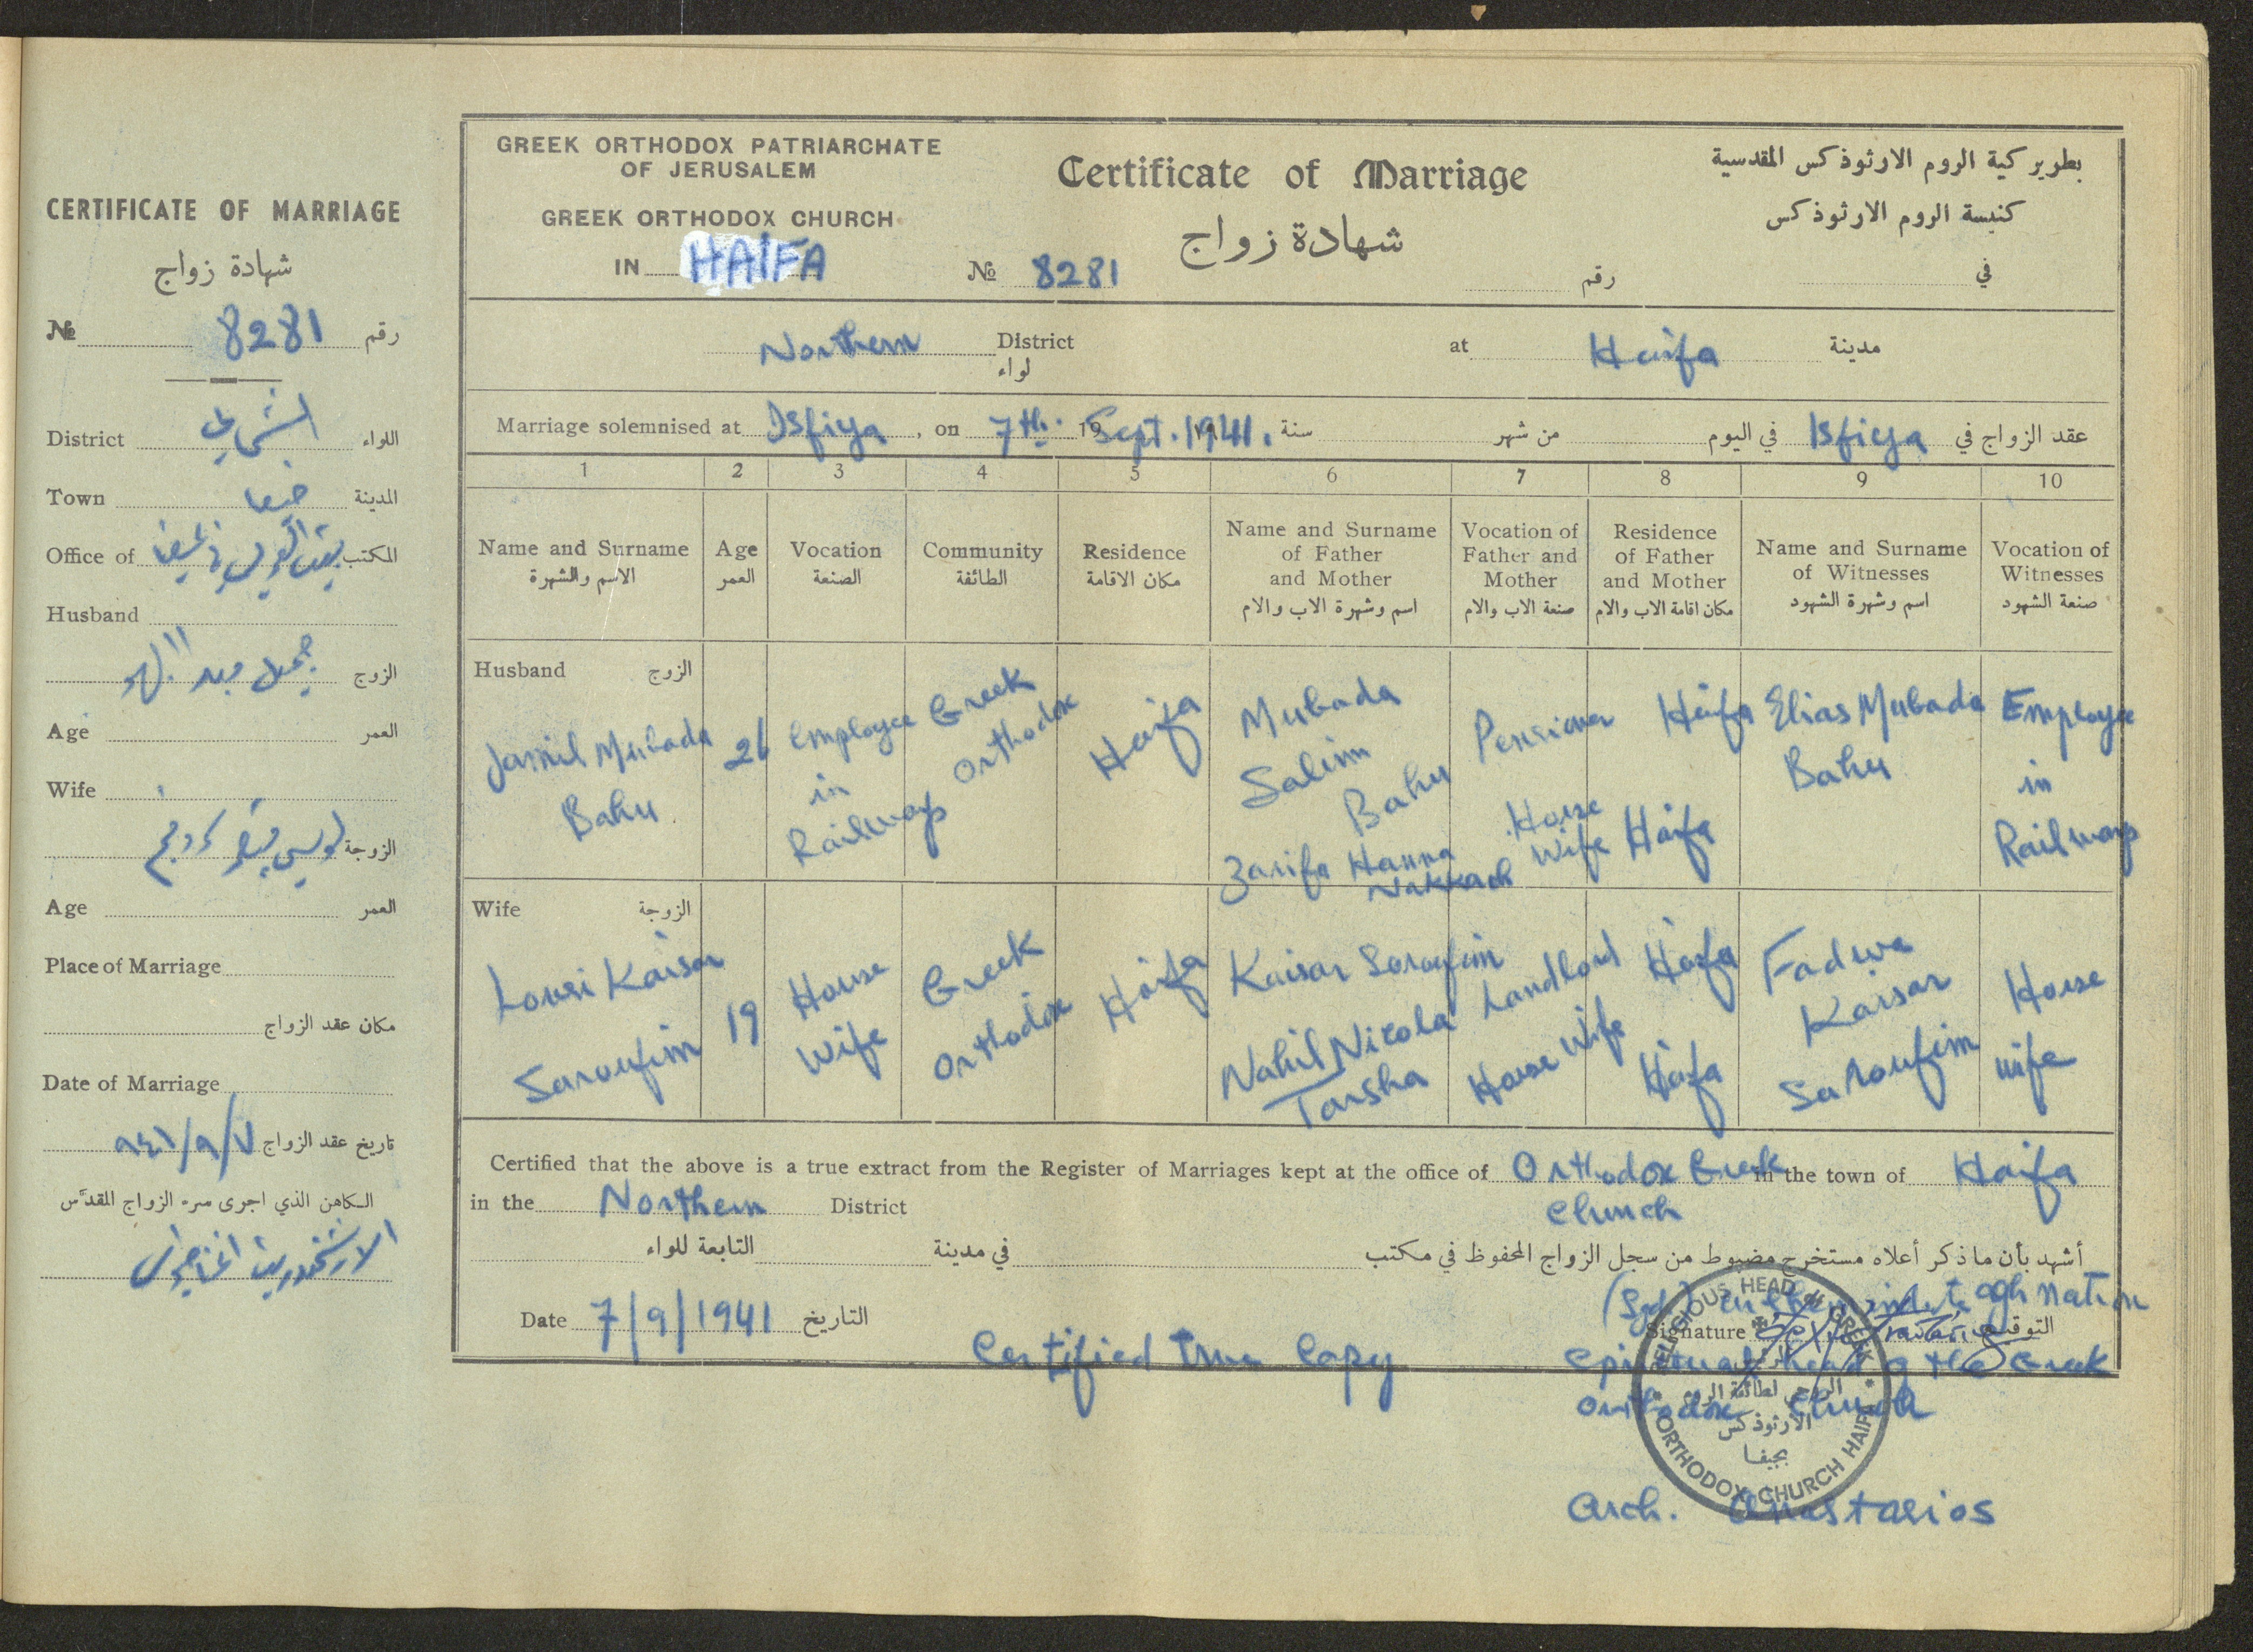 CERTIFICATE OF MARRIAGE
شهادة زواج
№ 8281 رقم
District الشمالي اللواء
Town حيفا المدينة
Office of المكتب
Husband
جميل مبدا البهو الزوج
Age العمر
Wife
الزوجة
Age العمر
Place of Marriage
مكان عقد الزواج
Date of Marriage
تاريخ عقد الزواج ٧/٩/٩٤١
الكاهن الذي اجرى سر الزواج المقدّس
GREEK ORTHODOX PATRIARCHATE
OF JERUSALEM
GREEK ORTHODOX CHURCH
IN HAIFA
Certificate of Marriage
شهادة زواج
№ 8281 رقم
بطريركية الروم الارثوذكس المقدسية
كنيسة الروم الارثوذكس
في
Northern District
لواء
at Haifa مدينة
Marriage solemnised at Isfiya, on 7th. Sept. 1941. سنة من شهر في اليوم Isfiya عقد الزواج في
1 2 3 4 5 6 7 8 9 10
Name and Surname
الاسم والشهرة
Age
العمر
Vocation
الصنعة
Community
الطائفة
Residence
مكان الاقامة
Name and Surname
of Father
and Mother
اسم وشهرة الاب والام
Vocation of
Father and
Mother
صنعة الاب والام
Residence
of Father
and Mother
مكان اقامة الاب والام
Name and Surname
of Witnesses
اسم وشهرة الشهود
Vocation of
Witnesses
صنعة الشهود
Husband الزوج
Jamil Mubada
Bahu
26
Employee
in
Railways
Greek
Orthodox
Haifa
Mubada
Salim
Bahu
Zarifa Hanna
Nakkach
Pensioner
House
Wife
Haifa
Haifa
Elias Mubada
Bahu
Employee
in
Railways
Wife الزوجة
Lousi Kaisar
Saroufim
19
House
Wife
Greek
Orthodox
Haifa
Kaisar Saroufim
Nahil Nicola
Tarsha
Landlord
House Wife
Haifa
Haifa
Fadwa
Kaisar
Saroufim
House
wife
Certified that the above is a true extract from the Register of Marriages kept at the office of Orthodox Greek in the town of Haifa
Church
in the Northern District
التابعة للواء في مدينة أشهد بأن ما ذكر أعلاه مستخرج مضبوط من سجل الزواج المحفوظ في مكتب
Date 7/9/1941 التاريخ
Certified true Copy
Signature التوقيع
Spiritual head of the Greek
Orthodox Church
RELIGIOUS HEAD OF GREEK
ORTHODOX CHURCH HAIFA
الروحي لطائفة الروم
الارثوذكس
بحيفا
Arch. Anastasios